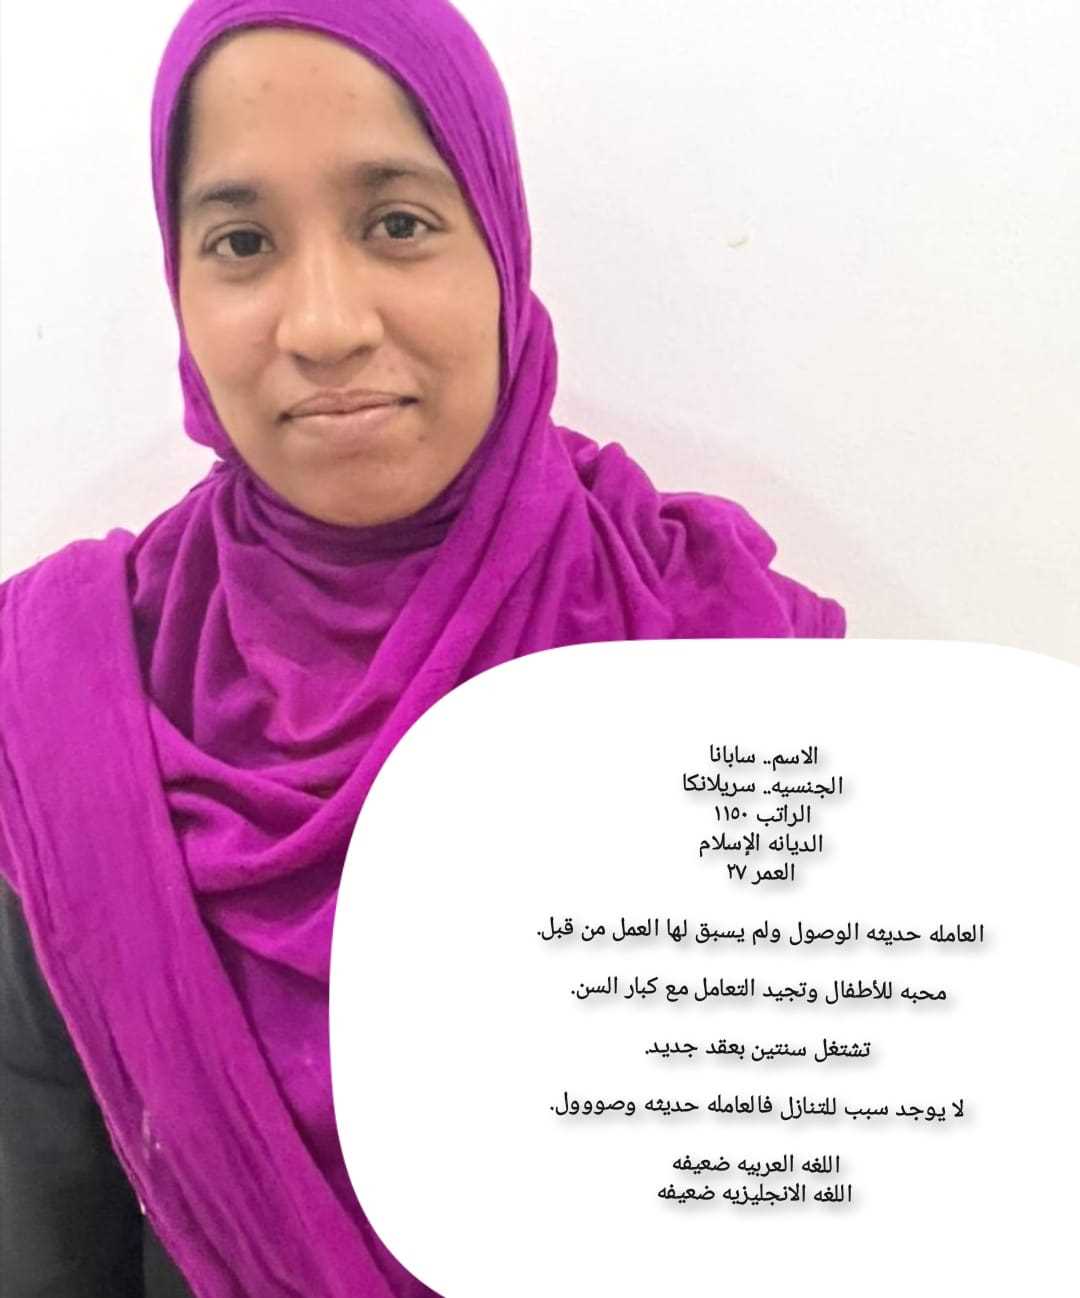 الاسم.. سابانا
الجنسيه.. سريلانكا
الراتب ١١٥٠
الديانه الإسلام
العمر ٢٧
العامله حديثه الوصول ولم يسبق لها العمل من قبل.
محبه للأطفال وتجيد التعامل مع كبار السن.
تشتغل سنتين بعقد جديد.
لا يوجد سبب للتنازل فالعامله حديثه وصووول.
اللغه العربيه ضعيفه
اللغه الانجليزيه ضعيفه